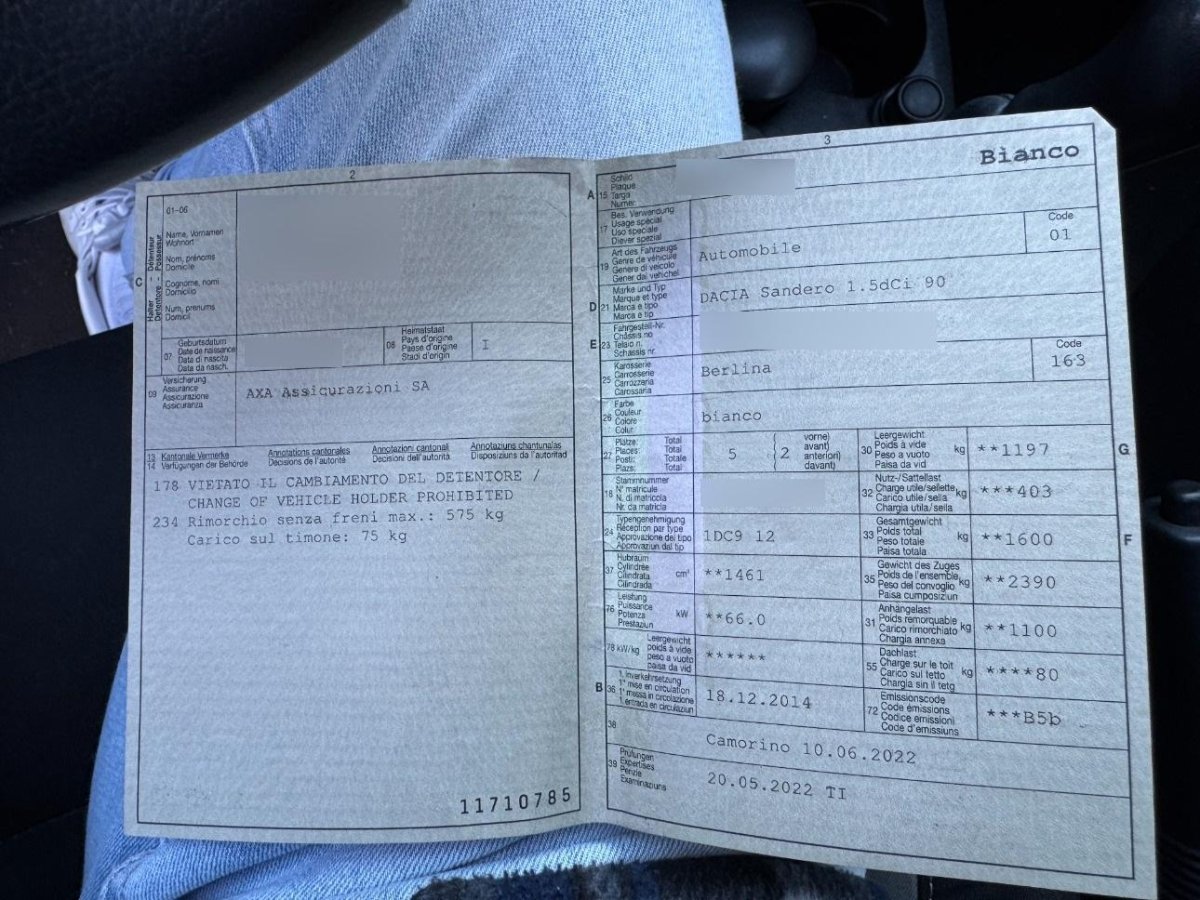 2
01-06
Détenteur - Possessur
Halter - Detentore
C
Name, Vornamen
Wohnort
Nom, prénoms
Domicile
Cognome, nomi
Domicilio
Num, prenums
Domicil
07
Geburtsdatum
Date de naissance
Data di nascita
Data da nasch.
08
Heimatstaat
Pays d'origine
Paese d'origine
Stadi d'origin
I
09
Versicherung
Assurance
Assicurazione
Assicuranza
AXA Assicurazioni SA
13 Kantonale Vermerke Annotations cantonales Annotazioni cantonali Annotaziuns chantunalas
14 Verfügungen der Behörde Décisions de l'autorité Decisioni dell'autorità Disposiziuns da l'autoritad
178 VIETATO IL CAMBIAMENTO DEL DETENTORE /
CHANGE OF VEHICLE HOLDER PROHIBITED
234 Rimorchio senza freni max.: 575 kg
Carico sul timone: 75 kg
11710785
3
Bianco
A 15
Schild
Plaque
Targa
Numer
17
Bes. Verwendung
Usage spécial
Uso speciale
Diever spezial
19
Art des Fahrzeugs
Genre de véhicule
Genere di veicolo
Gener dal vehichel
Automobile
Code
01
D 21
Marke und Typ
Marque et type
Marca e tipo
Marca e tip
DACIA Sandero 1.5dCi 90
E 23
Fahrgestell-Nr.
Châssis no
Telaio n.
Schassis nr.
25
Karosserie
Carrosserie
Carrozzeria
Carossaria
Berlina
Code
163
26
Farbe
Couleur
Colore
Colur
bianco
27
Plätze: Total
Places: Total
Posti: Totale
Plazs: Total
5
2
vorne)
avant)
anteriori)
davant)
30
Leergewicht
Poids à vide
Peso a vuoto
Paisa da vid
kg
**1197
G
18
Stammnummer
N° matricule
N. di matricola
Nr. da matricla
32
Nutz-/Sattellast
Charge utile/sellette
Carico utile/sella
Chargia utila/sella
kg
***403
24
Typengenehmigung
Réception par type
Approvazione del tipo
Approvaziun dal tip
1DC9 12
33
Gesamtgewicht
Poids total
Peso totale
Paisa totala
kg
**1600
F
37
Hubraum
Cylindrée
Cilindrata
Cilindrada
cm³
**1461
35
Gewicht des Zuges
Poids de l'ensemble
Peso del convoglio
Paisa cumposiziun
kg
**2390
76
Leistung
Puissance
Potenza
Prestaziun
kW
**66.0
31
Anhängelast
Poids remorquable
Carico rimorchiato
Chargia annexa
kg
**1100
78 kW/kg
Leergewicht
poids à vide
peso a vuoto
paisa da vid
******
55
Dachlast
Charge sur le toit
Carico sul tetto
Chargia sin il tetg
kg
****80
B 36
1. Inverkehrsetzung
1re mise en circulation
1a messa in circolazione
1. entrada en circulaziun
18.12.2014
72
Emissionscode
Code émissions
Codice emissioni
Code d'emissiuns
***B5b
38
Camorino 10.06.2022
39
Prüfungen
Expertises
Perizie
Examinaziuns
20.05.2022 TI